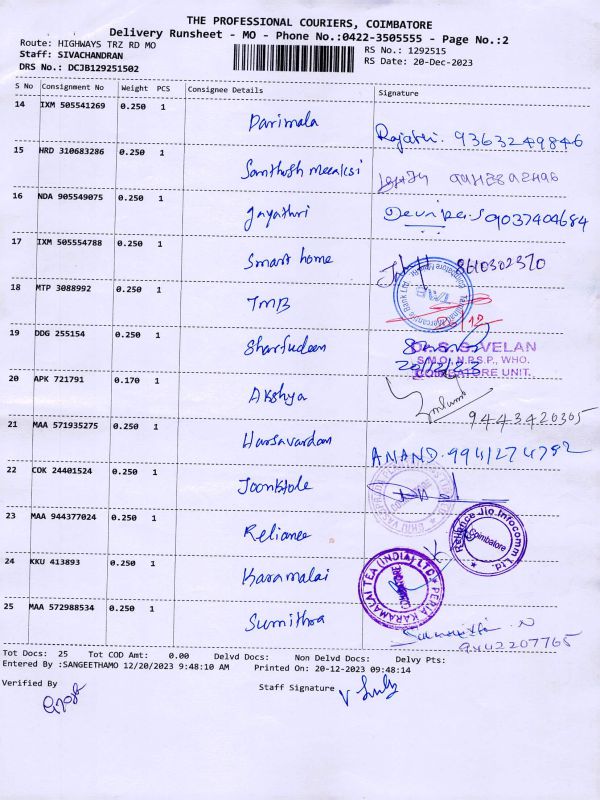 THE PROFESSIONAL COURIERS, COIMBATORE
Delivery Runsheet - MO - Phone No.:0422-3505555 - Page No.:2
Route: HIGHWAYS TRZ RD MO
RS No.: 1292515
Staff: SIVACHANDRAN
RS Date: 20-Dec-2023
DRS No.: DCJB129251502
S No Consignment No Weight PCS Consignee Details Signature
14 IXM 505541269 0.250 1 Parimala 9363249846
15 HRD 310683286 0.250 1 Santhosh
16 NDA 905549075 0.250 1 Jayathri 9037404684
17 IXM 505554788 0.250 1 Smart home 8610302370
18 MTP 3088992 0.250 1 TMB
19 DDG 255154 0.250 1 Sharfudeen
Dr. S. S. VELAN
S.M.O., N.P.S.P., WHO.
COIMBATORE UNIT.
20/12/23
20 APK 721791 0.170 1 Akshya 9443420305
21 MAA 571935275 0.250 1 Harsavardan ANAND. 9941274792
22 COK 24401524 0.250 1
23 MAA 944377024 0.250 1 Reliance
Reliance Jio Infocomm Ltd.
Coimbatore
24 KKU 413893 0.250 1 Karamalai
PERIA KARAMALAI TEA (INDIA) LTD
COIMBATORE
25 MAA 572988534 0.250 1 Sumithra
9442207765
Tot Docs: 25 Tot COD Amt: 0.00 Delvd Docs: Non Delvd Docs: Delvy Pts:
Entered By :SANGEETHAMO 12/20/2023 9:48:10 AM Printed On: 20-12-2023 09:48:14
Verified By
Staff Signature